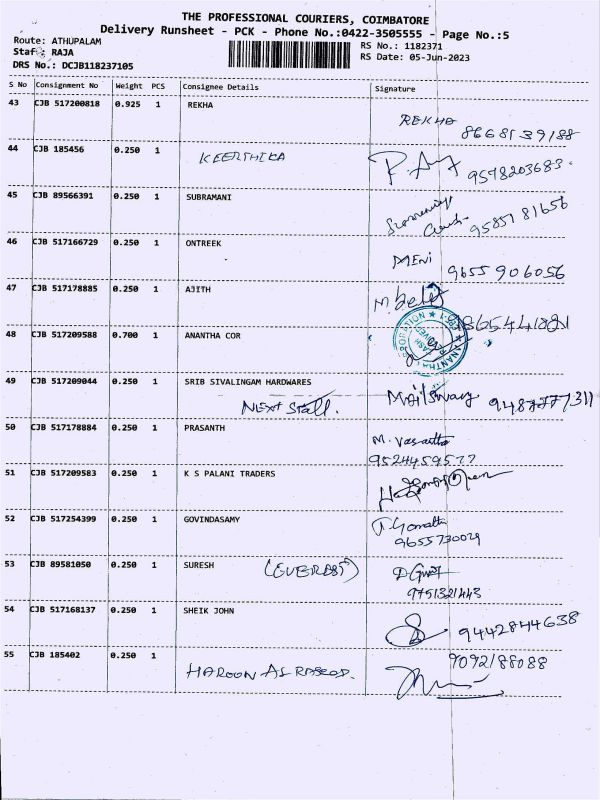 THE PROFESSIONAL COURIERS, COIMBATORE
Delivery Runsheet - PCK - Phone No.:0422-3505555 - Page No.:5
Route: ATHUPALAM
RS No.: 1182371
Staf : RAJA
RS Date: 05-Jun-2023
DRS No.: DCJB118237105
S No Consignment No Weight PCS Consignee Details Signature
43 CJB 517200818 0.925 1 REKHA
REKHA
8668139188
44 CJB 185456 0.250 1 KEERTHIKA
9578203683
45 CJB 89566391 0.250 1 SUBRAMANI
9585781656
46 CJB 517166729 0.250 1 ONTREEK
MENI
9655906056
47 CJB 517178885 0.250 1 AJITH
48 CJB 517209588 0.700 1 ANANTHA COR
49 CJB 517209044 0.250 1 SRIB SIVALINGAM HARDWARES
NEXT Stall.
50 CJB 517178884 0.250 1 PRASANTH
M. Vasantha
9524459577
51 CJB 517209583 0.250 1 K S PALANI TRADERS
52 CJB 517254399 0.250 1 GOVINDASAMY
9655730029
53 CJB 89581050 0.250 1 SURESH
9751321443
54 CJB 517168137 0.250 1 SHEIK JOHN
9442844638
55 CJB 185402 0.250 1
9092188088
HAROON